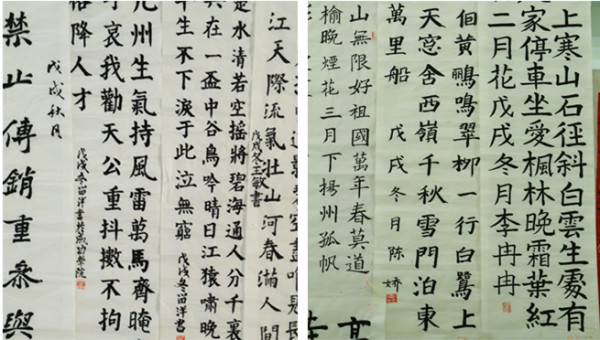 江天際流氣壯山河春滿人間
戊戌冬王敏書
是水清若空摇將碧海通人分千裏
共在一盃中谷鳥吟晴日江猿嘯晚
生不下淚于此泣無窮
戊戌冬苗洋書
九州生氣持風雷萬馬齊喑
哀我勸天公重抖擻不拘
格降人才
戊戌冬苗洋書於成功學院
戊戌秋月
禁止傳銷重参與
上寒山石徑斜白雲生處有
家停車坐愛楓林晚霜葉紅
二月花戊戌冬月李冉冉
個黄鸝鳴翠柳一行白鷺上
天窓含西嶺千秋雪門泊東
萬里船 戊戌冬月陳嬌
山無限好祖國萬年春莫道
榆晚煙花三月下揚州孤帆